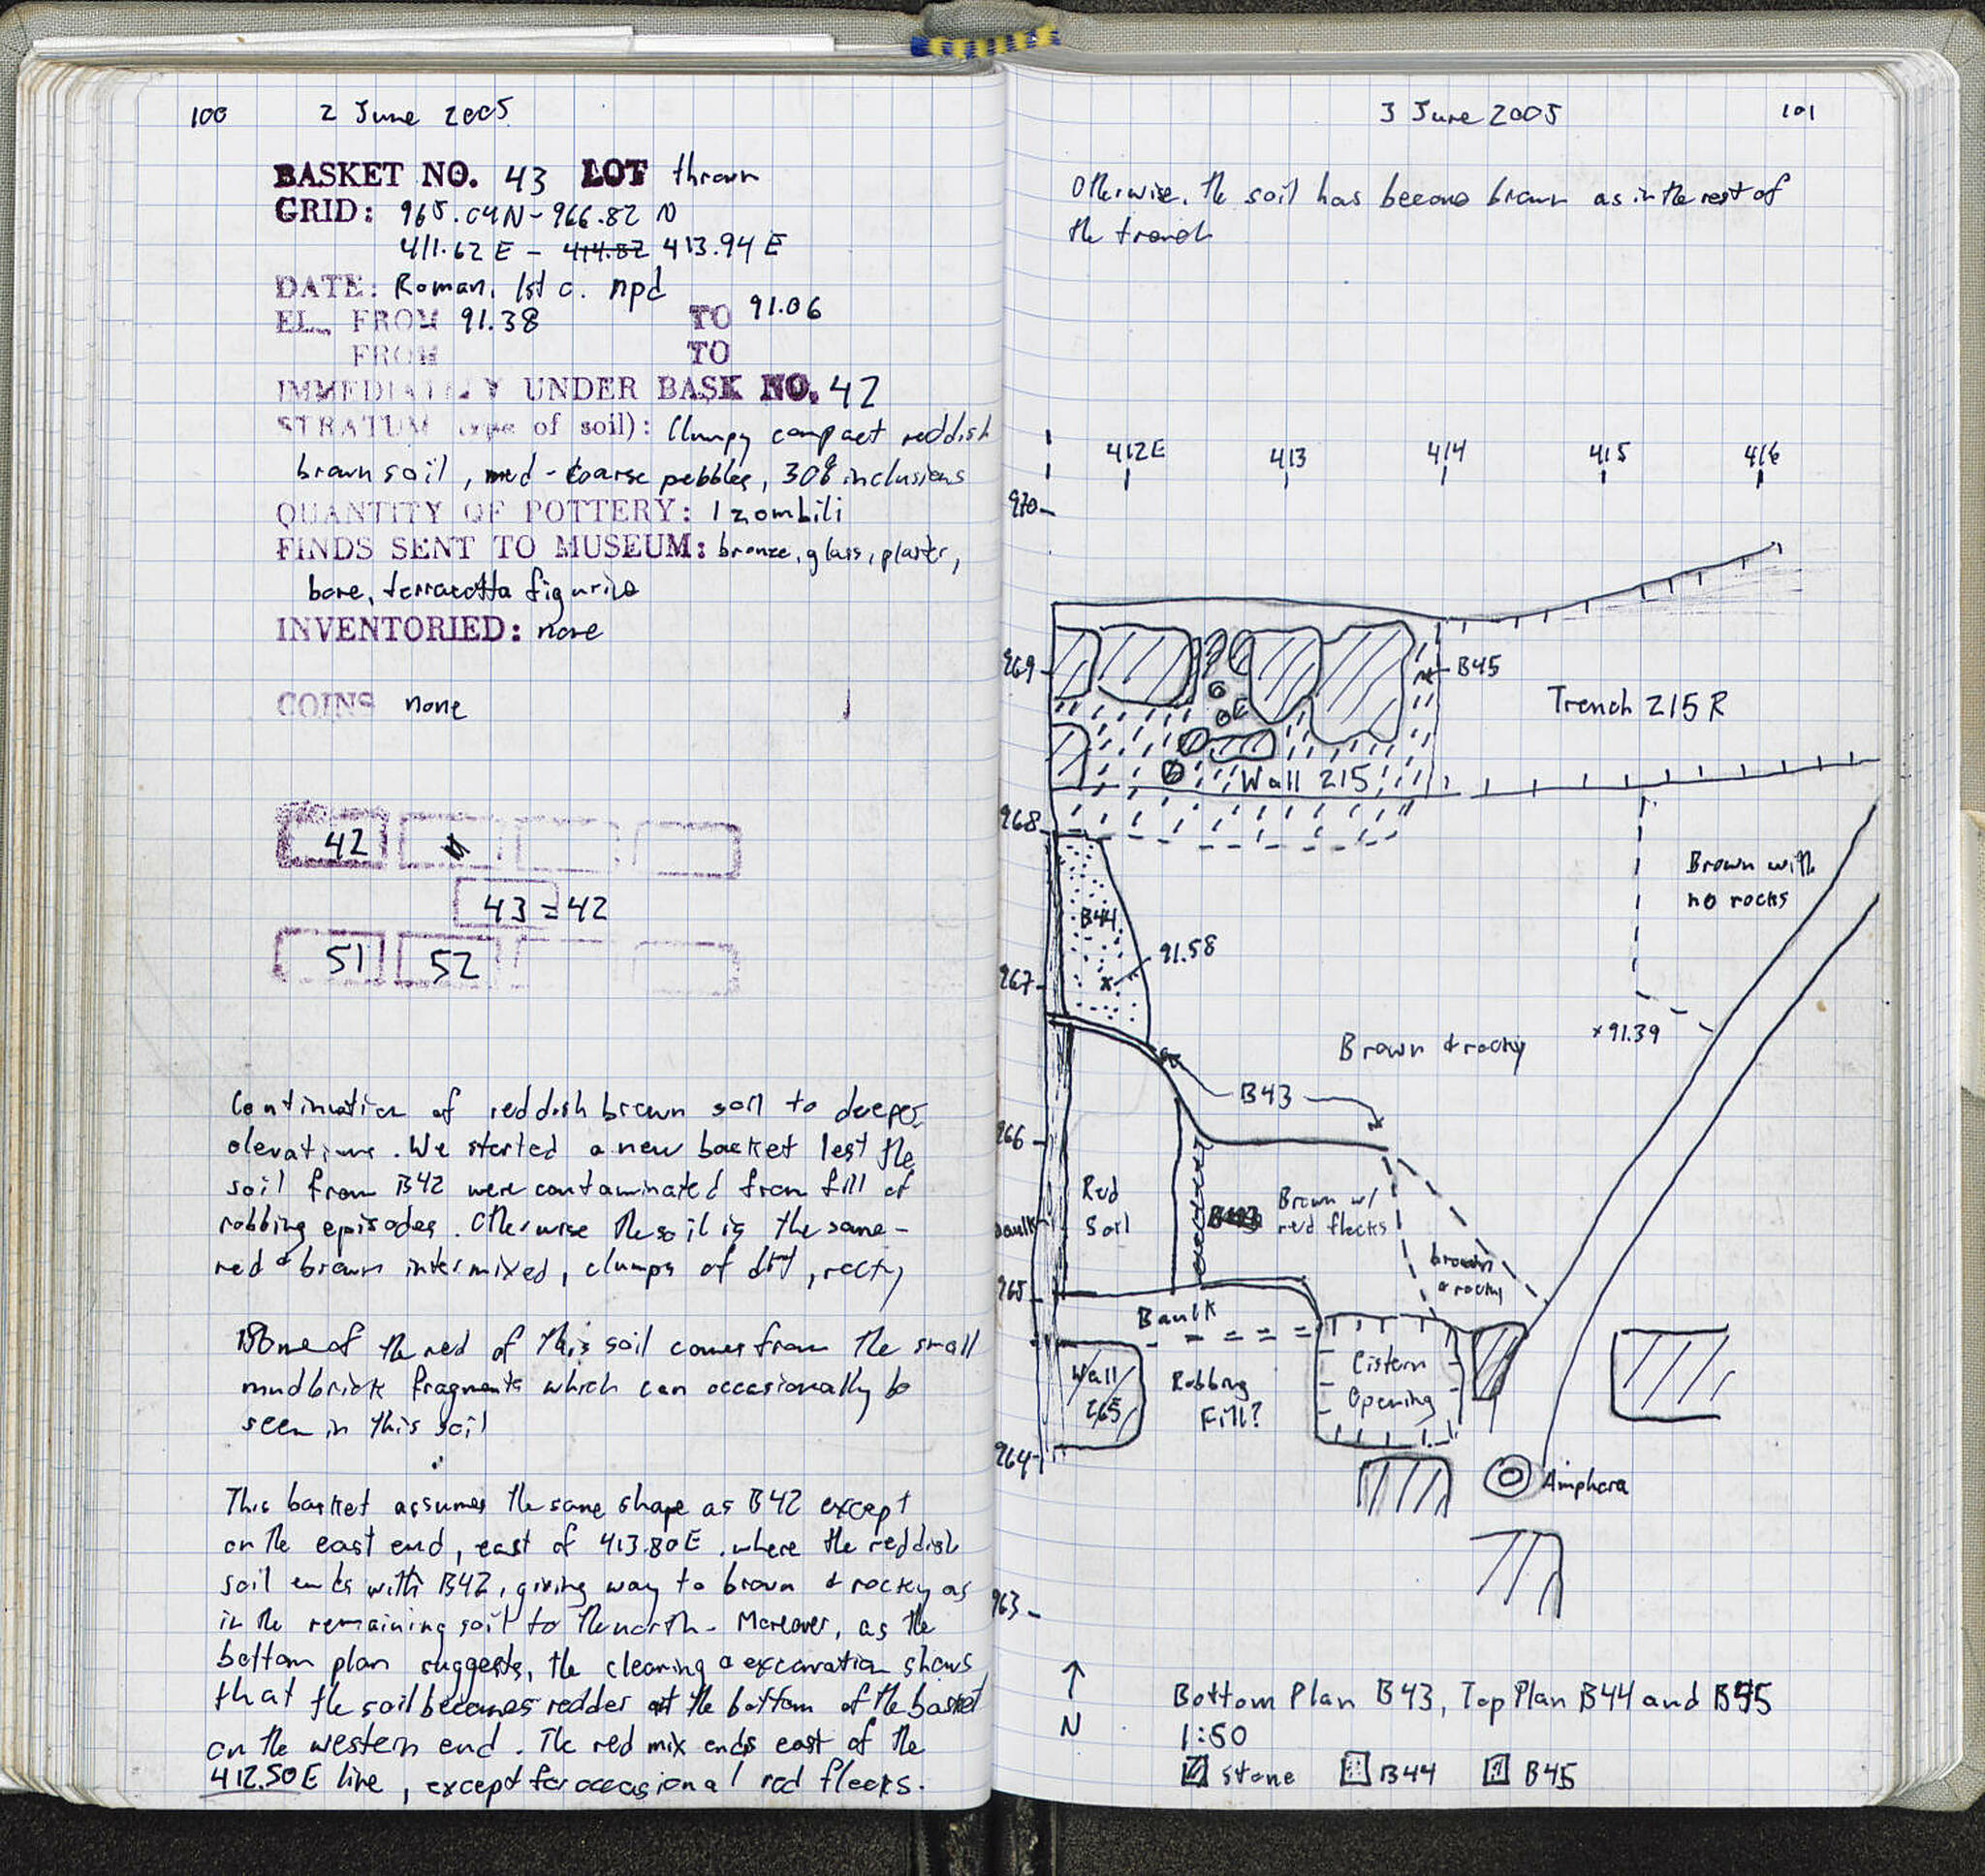 100 2 June 2005
BASKET NO. 43 LOT thrown
GRID: 965.04N - 966.82 N
411.62 E - 414.82 413.94 E
DATE: Roman, 1st c. npd
EL. FROM 91.38 TO 91.06
FROM TO
IMMEDIATELY UNDER BASK NO. 42
STRATUM (type of soil): Clumpy compact reddish
brown soil, med-coarse pebbles, 30% inclusions
QUANTITY OF POTTERY: 1 zombili
FINDS SENT TO MUSEUM: bronze, glass, plaster,
bone, terracotta figurine
INVENTORIED: none
COINS none
42
43 = 42
51 52
Continuation of reddish brown soil to deeper
elevations. We started a new basket lest the
soil from B42 were contaminated from fill of
robbing episodes. Otherwise the soil is the same -
red & brown intermixed, clumps of dirt, rocky
Some of the red of this soil comes from the small
mudbrick fragments which can occasionally be
seen in this soil
This basket assumes the same shape as B42 except
on the east end, east of 413.80E, where the reddish
soil ends with B42, giving way to brown & rocky as
in the remaining soil to the north. Moreover, as the
bottom plan suggests, the cleaning & excavation shows
that the soil becomes redder at the bottom of the basket
on the western end. The red mix ends east of the
412.50E line, except for occasional red flecks.
3 June 2005 101
Otherwise, the soil has become brown as in the rest of
the trench
412E 413 414 415 416
970
969
B45
Trench 215 R
Wall 215
968
Brown with
no rocks
B44
91.58
967
×91.39
Brown & rocky
B43
966
Red
Soil
Brown w/
red flecks
Baulk
brown
& rocky
965
Baulk
Wall
265
Robbing
Fill?
Cistern
Opening
964
Amphora
963
N
Bottom Plan B43, Top Plan B44 and B45
1:50
stone B44 B45